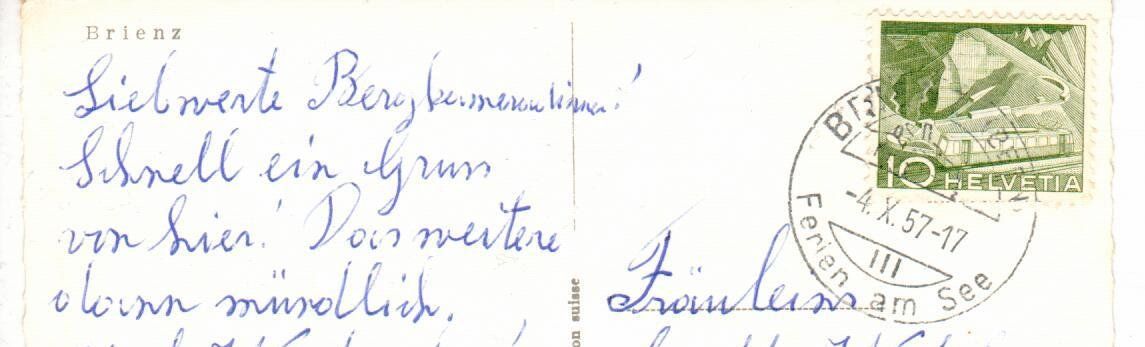 Brienz
Liebwerte Bergkameradinnen!
Schnell ein Gruss
von hier! Das weitere
dann mündlich.
on suisse
Fräulein
10 HELVETIA
-4.X.57-17
III
Ferien am See